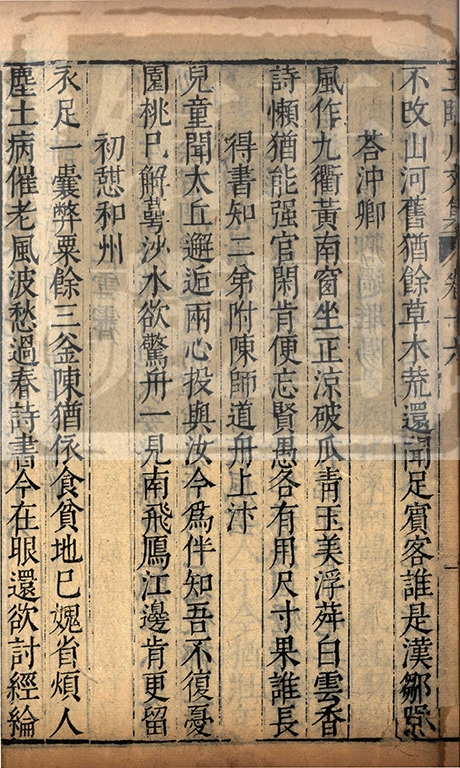 不改山河舊猶餘草木荒還聞足賓客誰是漢鄒
荅沖卿
風作九衢黃南窗坐正涼破瓜青玉美浮荈白雲香
詩懶猶能强官閑肯便忘賢愚各有用尺寸果誰長
得書知二弟附陳師道舟上汴
兒童聞太丘邂近兩心投與汝今爲伴知吾不復憂
園桃已解萼沙水欲驚舟一見南飛鴈江邊肯更留
初憇和州
永足一囊弊粟餘三釡陳猶依食貧地已媿省煩人
塵土病催老風波愁過春詩書今在眼還欲討經綸